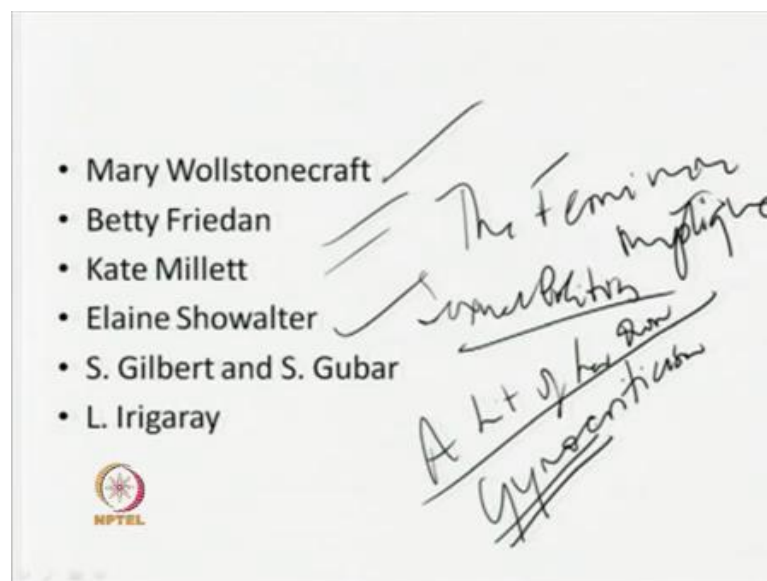 • Mary Wollstonecraft
• Betty Friedan
• Kate Millett
• Elaine Showalter
• S. Gilbert and S. Gubar
• L. Irigaray
The Feminine
Mystique
Sexual Politics
A Lit of her own
Gynocriticism
NPTEL